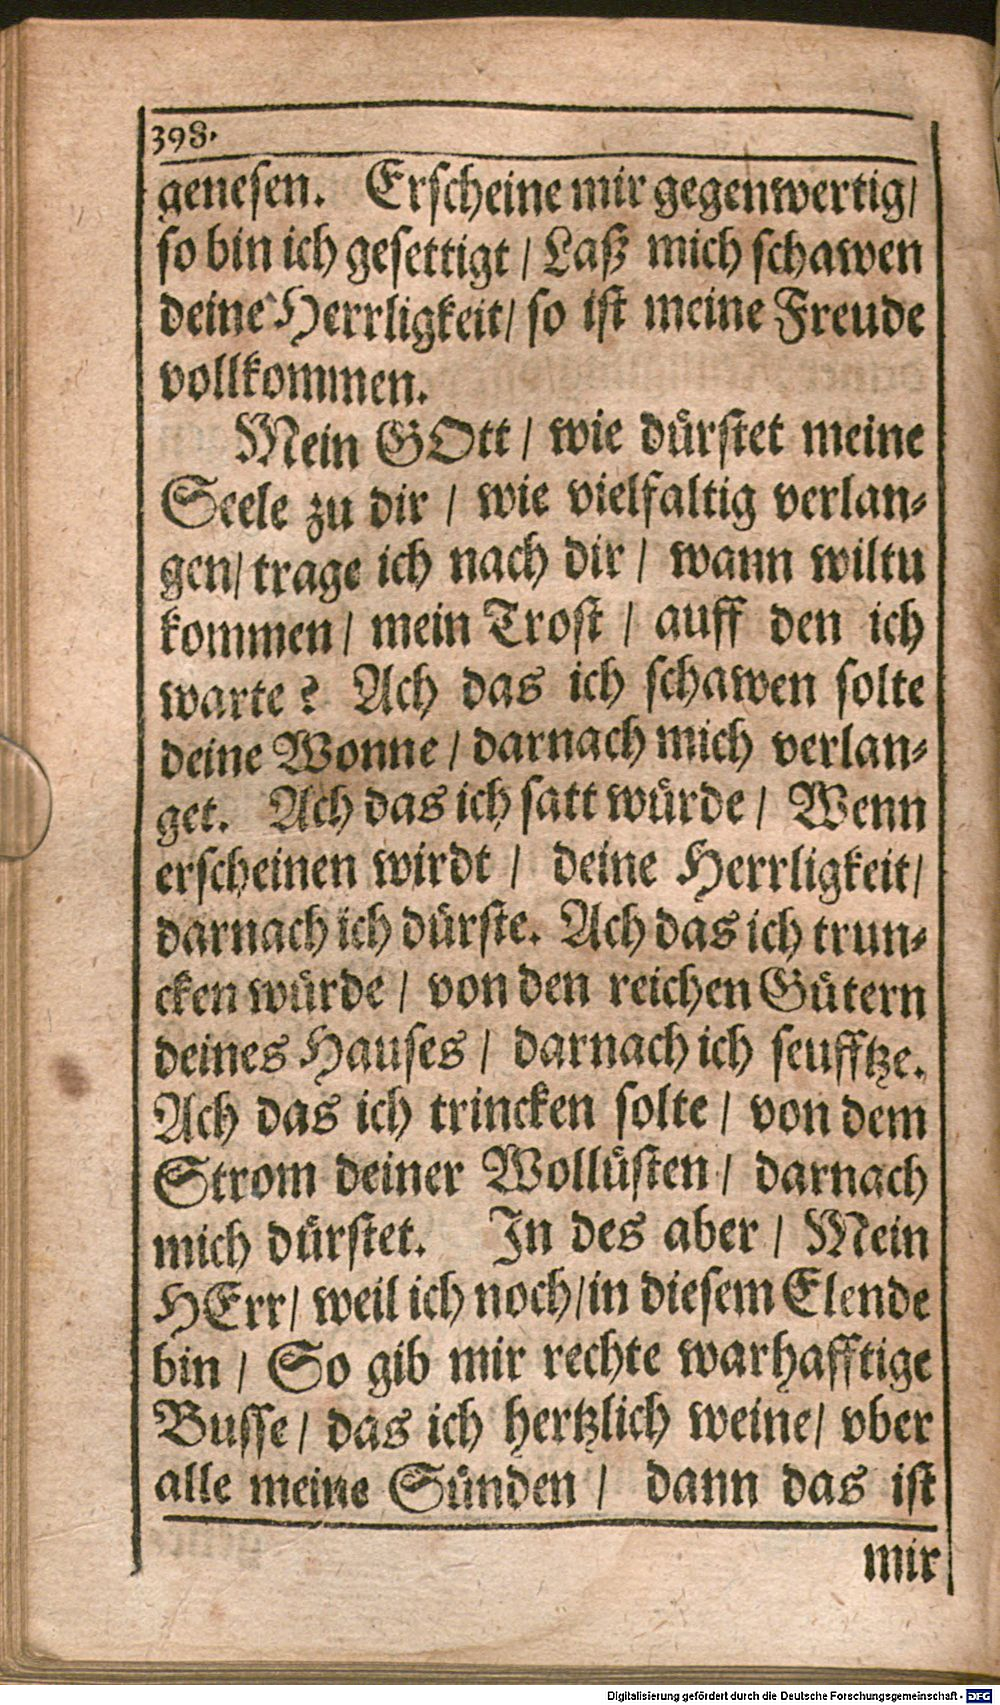 398.
genesen. Erscheine mir gegenwertig/
so bin ich gesettigt / Laß mich schawen
deine Herrligkeit/ so ist meine Freude
vollkommen.
Mein GOtt / wie dürstet meine
Seele zu dir / wie vielfaltig verlan-
gen/ trage ich nach dir / wann wiltu
kommen / mein Trost / auff den ich
warte? Ach das ich schawen solte
deine Wonne / darnach mich verlan-
get. Ach das ich satt würde / Wenn
erscheinen wirdt / deine Herrligkeit/
darnach ich dürste. Ach das ich trun-
cken würde / von den reichen Gütern
deines Hauses / darnach ich seufftze.
Ach das ich trincken solte / von dem
Strom deiner Wollüsten / darnach
mich dürstet. In des aber / Mein
HErr/ weil ich noch/ in diesem Elende
bin / So gib mir rechte warhafftige
Busse / das ich hertzlich weine/ vber
alle meine Sünden / dann das ist
mir
Digitalisierung gefördert durch die Deutsche Forschungsgemeinschaft - DFG